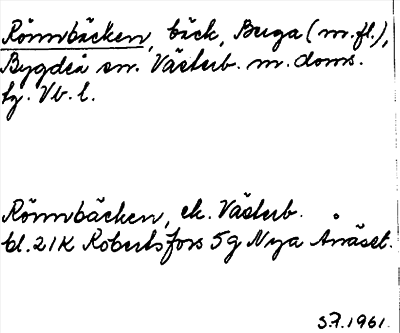 Rönnbäcken, bäck, Buga (m.fl.),
Bygdeå sn. Västerb. m. doms.
tg. Vb. l.
Rönnbäcken, ek. Västerb.
bl. 21K Robertsfors 5g Nya Ånäset.
3.7.1961.